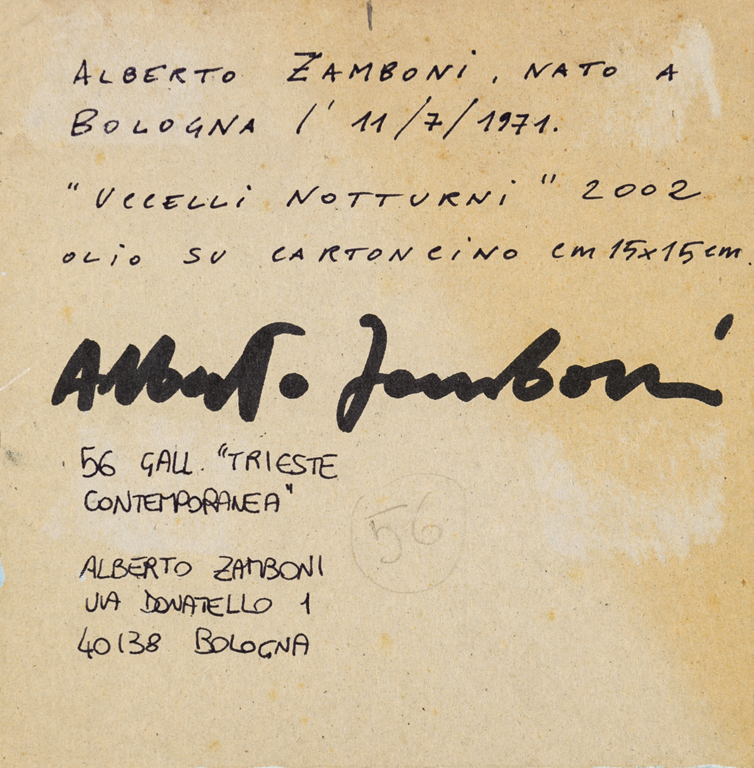 ALBERTO ZAMBONI, NATO A
BOLOGNA l' 11/7/1971.
"UCCELLI NOTTURNI" 2002
OLIO SU CARTONCINO cm 15x15 cm.
Alberto Zamboni
56 GALL. "TRIESTE
CONTEMPORANEA"
56
ALBERTO ZAMBONI
VIA DONATELLO 1
40138 BOLOGNA